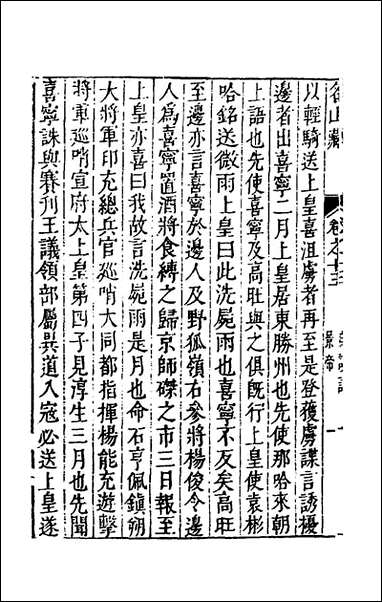 名山藏
卷之十三
景帝
以輕騎送上皇喜沮虜者再至是登獲虜諜言誘擾
邊者出喜寧二月上皇居東勝州也先使那哈來朝
上語也先使喜寧及高旺與之俱旣行上皇使袁彬
哈銘送微雨上皇曰此洗屍雨也喜寧不反矣高旺
至邊亦言喜寧於邊人及野狐嶺右參將楊俊令邊
人爲喜寧置酒將食縛之歸京師磔之市三日報至
上皇亦喜曰我故言洗屍雨是月也命石亨佩鎮朔
大將軍印充總兵官廵哨大同都指揮楊能充遊擊
將軍廵哨宣府太上皇第四子見淳生三月也先聞
喜寧誅與賽刋王議領部屬異道入寇必送上皇遂